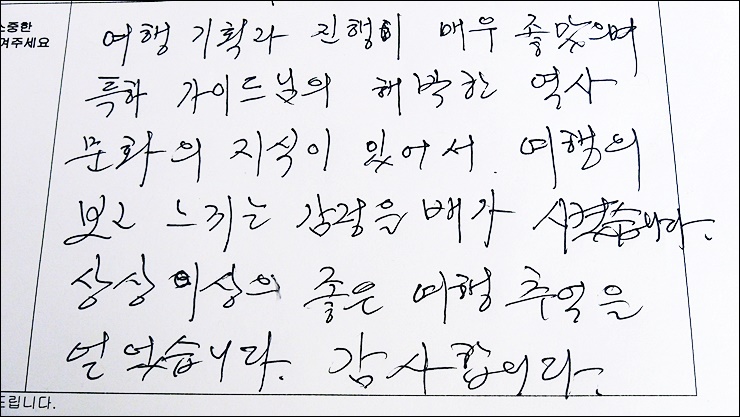 소중한
겨주세요
여행 기획과 진행이 매우 좋았으며
특히 가이드님의 해박한 역사
문화의 지식이 있어서 여행의
보고 느끼는 감정을 배가 시켰습니다.
상상 이상의 좋은 여행 추억을
얻었습니다. 감사합니다.
드립니다.